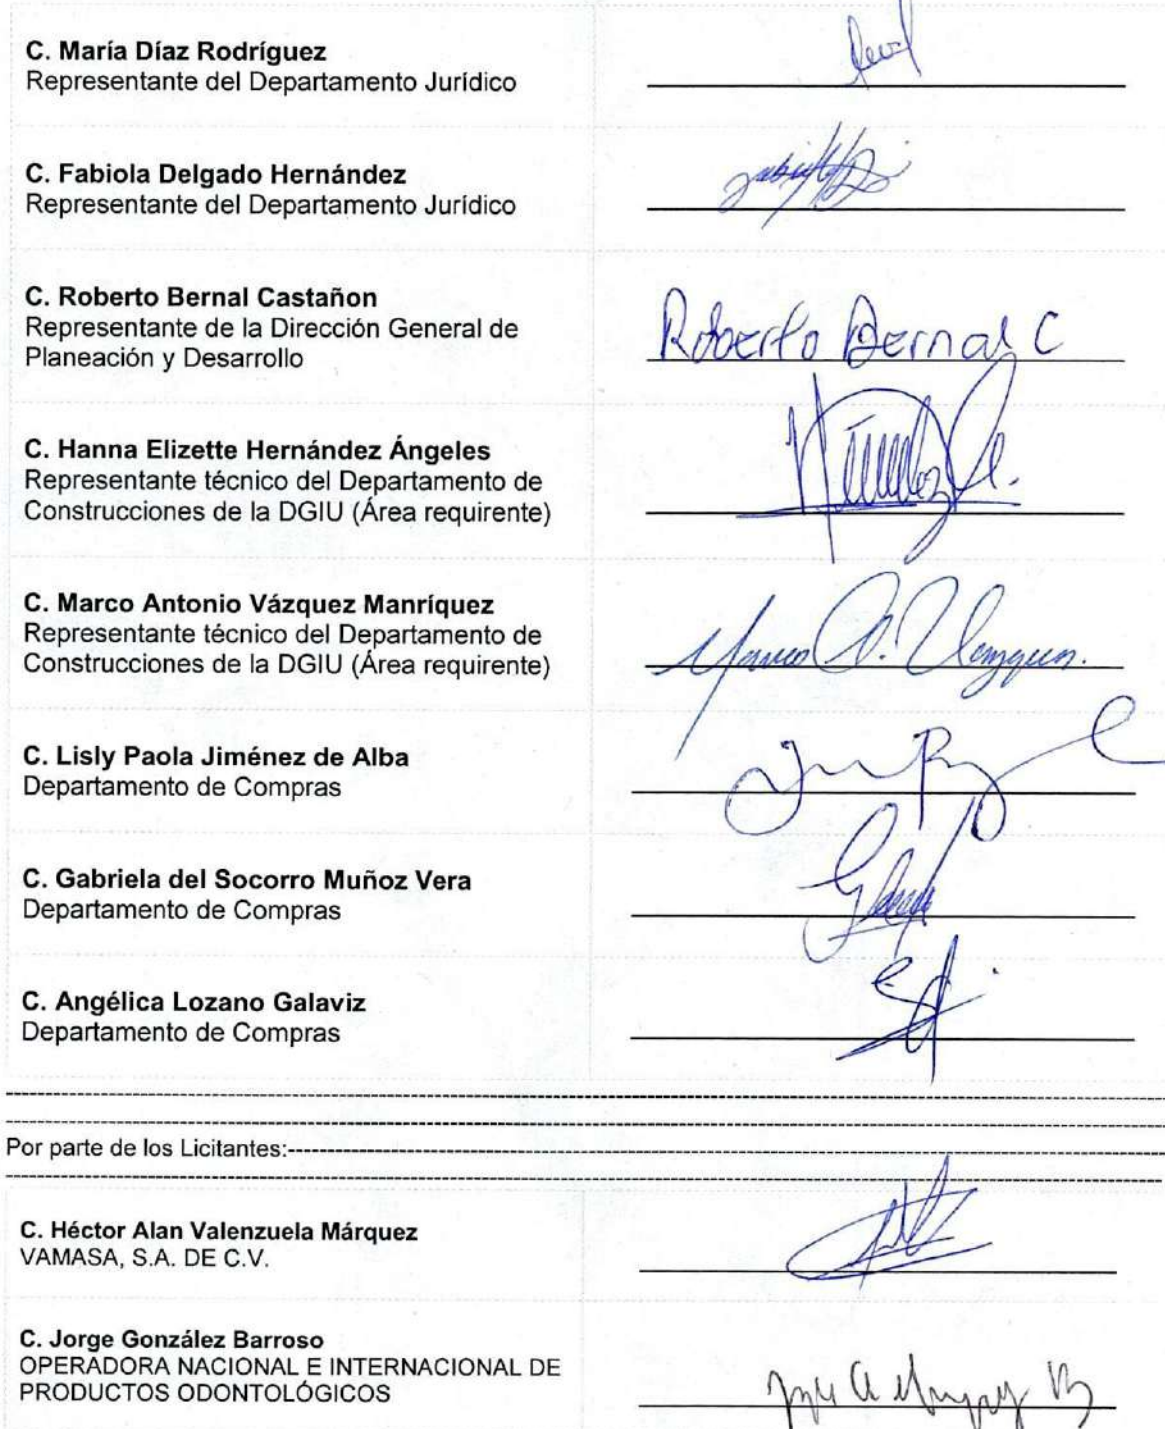 C. María Díaz Rodríguez
Representante del Departamento Jurídico
C. Fabiola Delgado Hernández
Representante del Departamento Jurídico
C. Roberto Bernal Castañon
Representante de la Dirección General de
Planeación y Desarrollo
Roberto Bernal C
C. Hanna Elizette Hernández Ángeles
Representante técnico del Departamento de
Construcciones de la DGIU (Área requirente)
C. Marco Antonio Vázquez Manríquez
Representante técnico del Departamento de
Construcciones de la DGIU (Área requirente)
C. Lisly Paola Jiménez de Alba
Departamento de Compras
C. Gabriela del Socorro Muñoz Vera
Departamento de Compras
C. Angélica Lozano Galaviz
Departamento de Compras
Por parte de los Licitantes:
C. Héctor Alan Valenzuela Márquez
VAMASA, S.A. DE C.V.
C. Jorge González Barroso
OPERADORA NACIONAL E INTERNACIONAL DE
PRODUCTOS ODONTOLÓGICOS